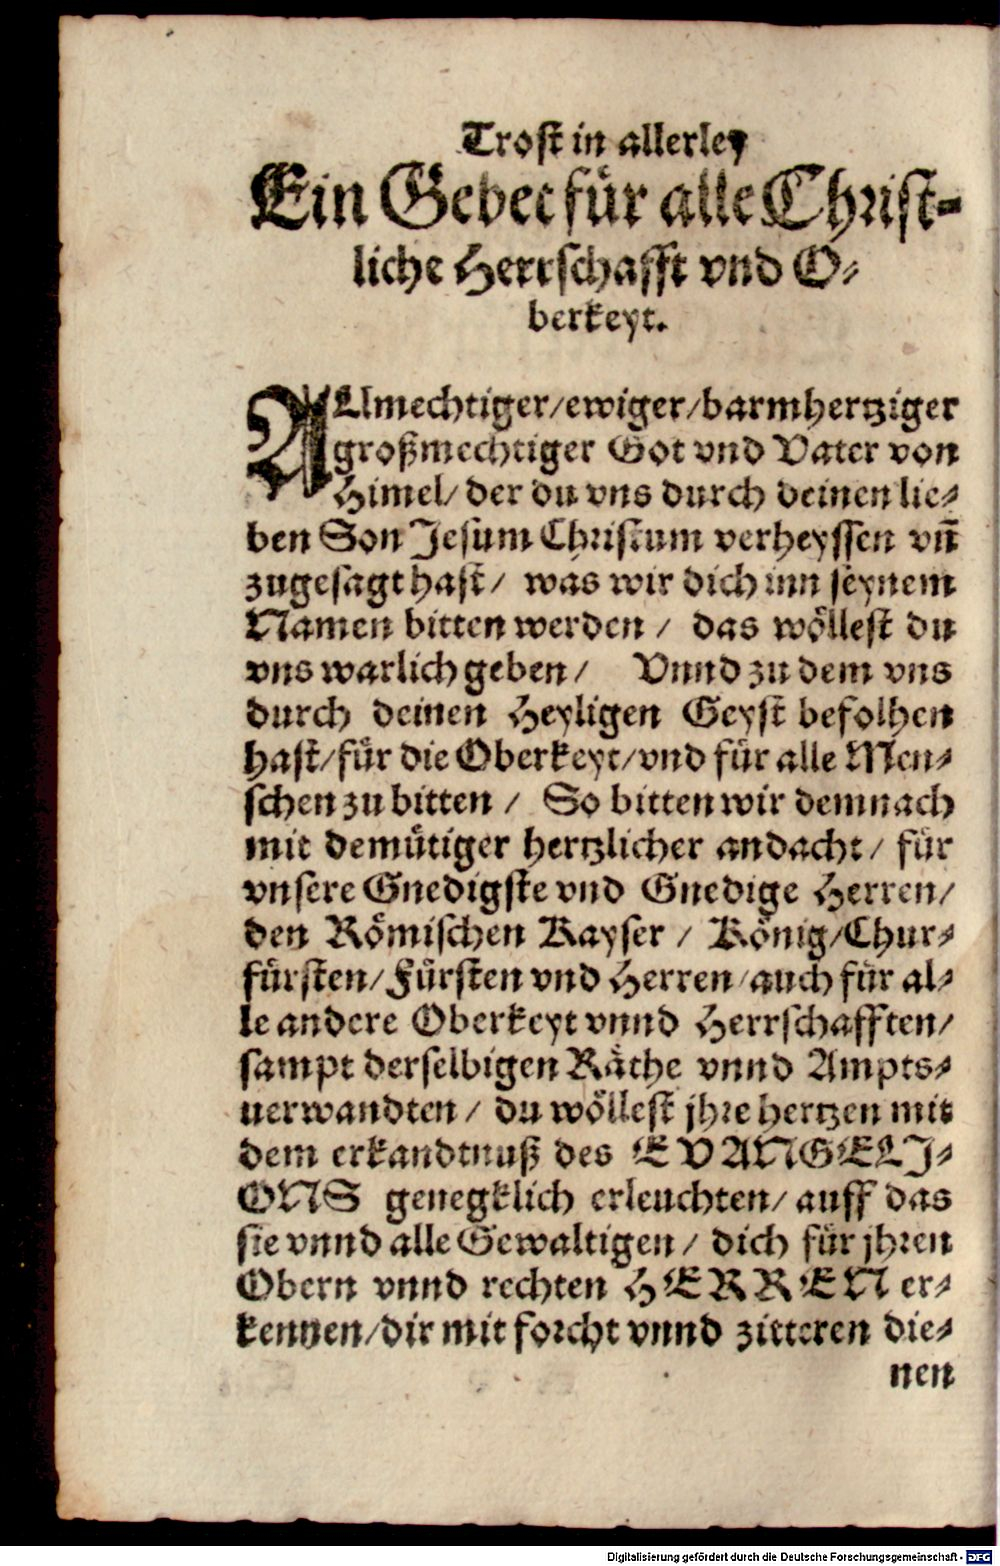 Trost in allerley
Ein Gebet für alle Christ-
liche Herrschafft vnd O-
berkeyt.
ALlmechtiger/ewiger/barmhertziger
großmechtiger Got vnd Vater von
Himel/ der du vns durch deinen lie-
ben Son Jesum Christum verheyssen vn̄
zugesagt hast/ was wir dich inn seynem
Namen bitten werden / das wöllest du
vns warlich geben / Vnnd zu dem vns
durch deinen Heyligen Geyst befolhen
hast/für die Oberkeyt/vnd für alle Men-
schen zu bitten / So bitten wir demnach
mit demütiger hertzlicher andacht / für
vnsere Gnedigste vnd Gnedige Herren/
den Römischen Kayser / König/Chur-
fürsten/Fürsten vnd Herren/auch für al-
le andere Oberkeyt vnnd Herrschafften/
sampt derselbigen Räthe vnnd Ampts-
uerwandten / du wöllest jhre hertzen mit
dem erkandtnuß des EVANGELJ-
ONS genegklich erleuchten/ auff das
sie vnnd alle Gewaltigen / dich für jhren
Obern vnnd rechten HERREN er-
kennen/dir mit forcht vnnd zitteren die-
nen
Digitalisierung gefördert durch die Deutsche Forschungsgemeinschaft - DFG